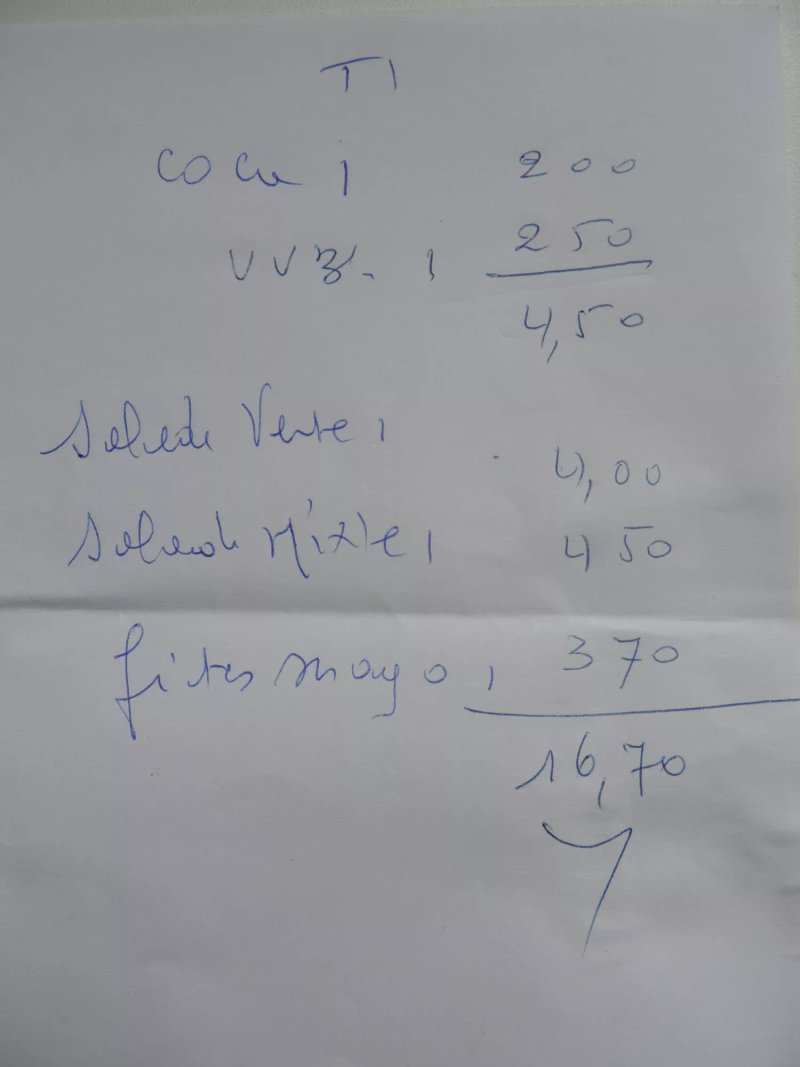 T1
coca 1 200
VVBl. 1 250
4,50
Salade Verte 1
4,00
Salade Mixte 1 450
frites mayo 1 370
16,70